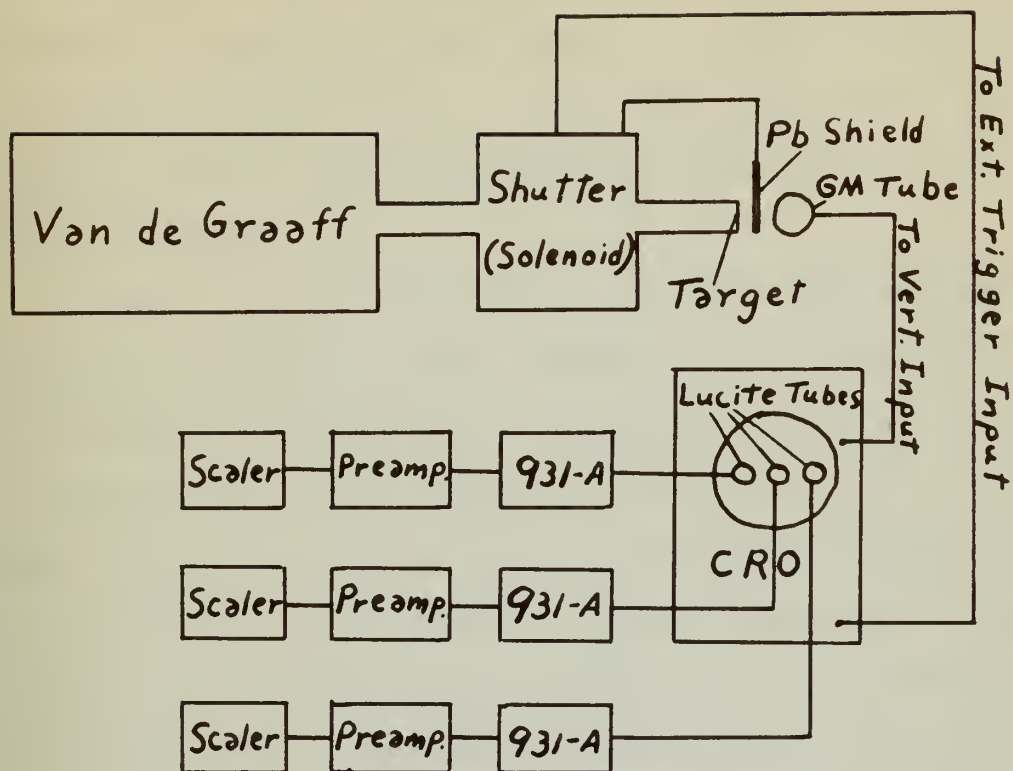 Van de Graaff
Shutter
(Solenoid)
Pb Shield
GM Tube
Target
To Vert. Input
To Ext. Trigger Input
Lucite Tubes
CRO
Scaler
Preamp.
931-A
Scaler
Preamp.
931-A
Scaler
Preamp.
931-A